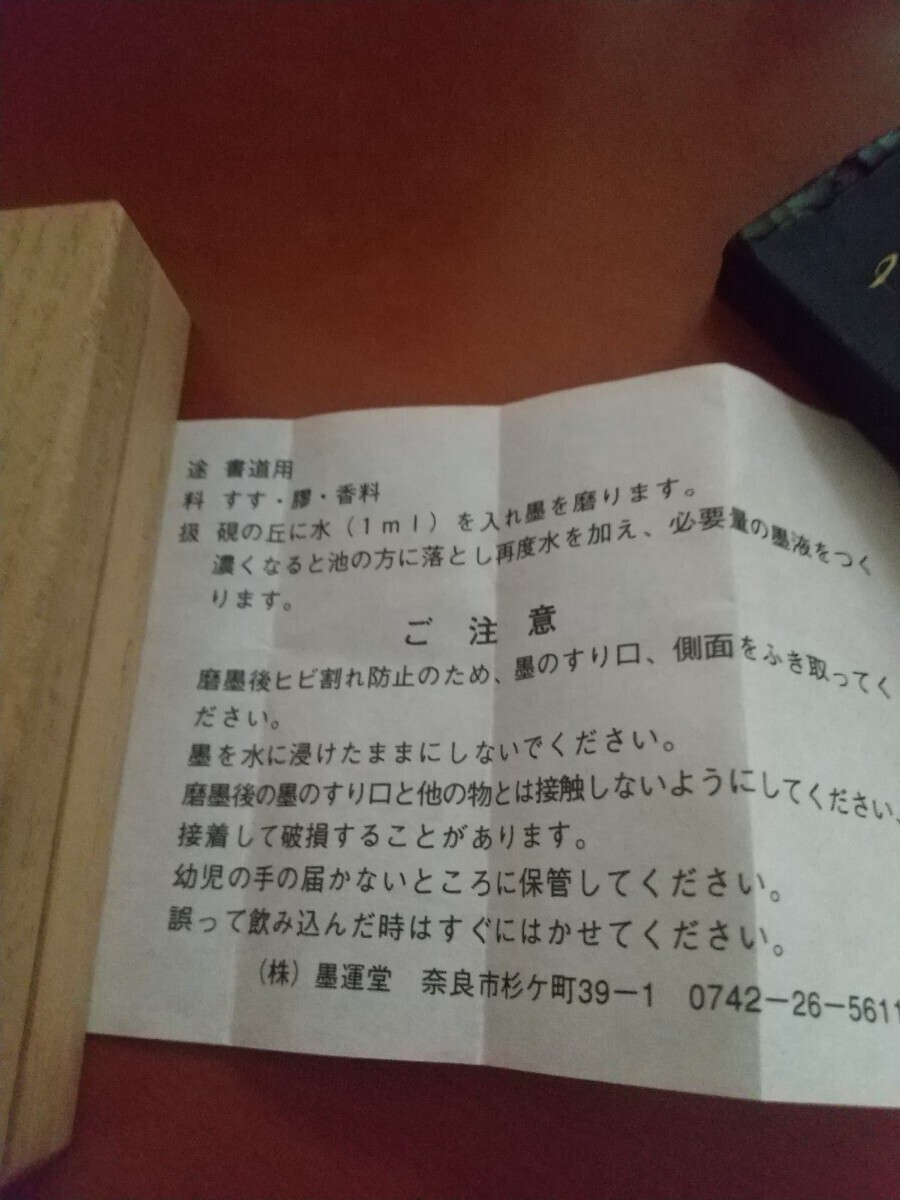 途 書道用
料 すす・膠・香料
扱 硯の丘に水(1ml)を入れ墨を磨ります。
濃くなると池の方に落とし再度水を加え、必要量の墨液をつく
ります。
ご注意
磨墨後ヒビ割れ防止のため、墨のすり口、側面をふき取ってく
ださい。
墨を水に浸けたままにしないでください。
磨墨後の墨のすり口と他の物とは接触しないようにしてください、
接着して破損することがあります。
幼児の手の届かないところに保管してください。
誤って飲み込んだ時はすぐにはかせてください。
(株)墨運堂 奈良市杉ケ町39-1 0742-26-5611